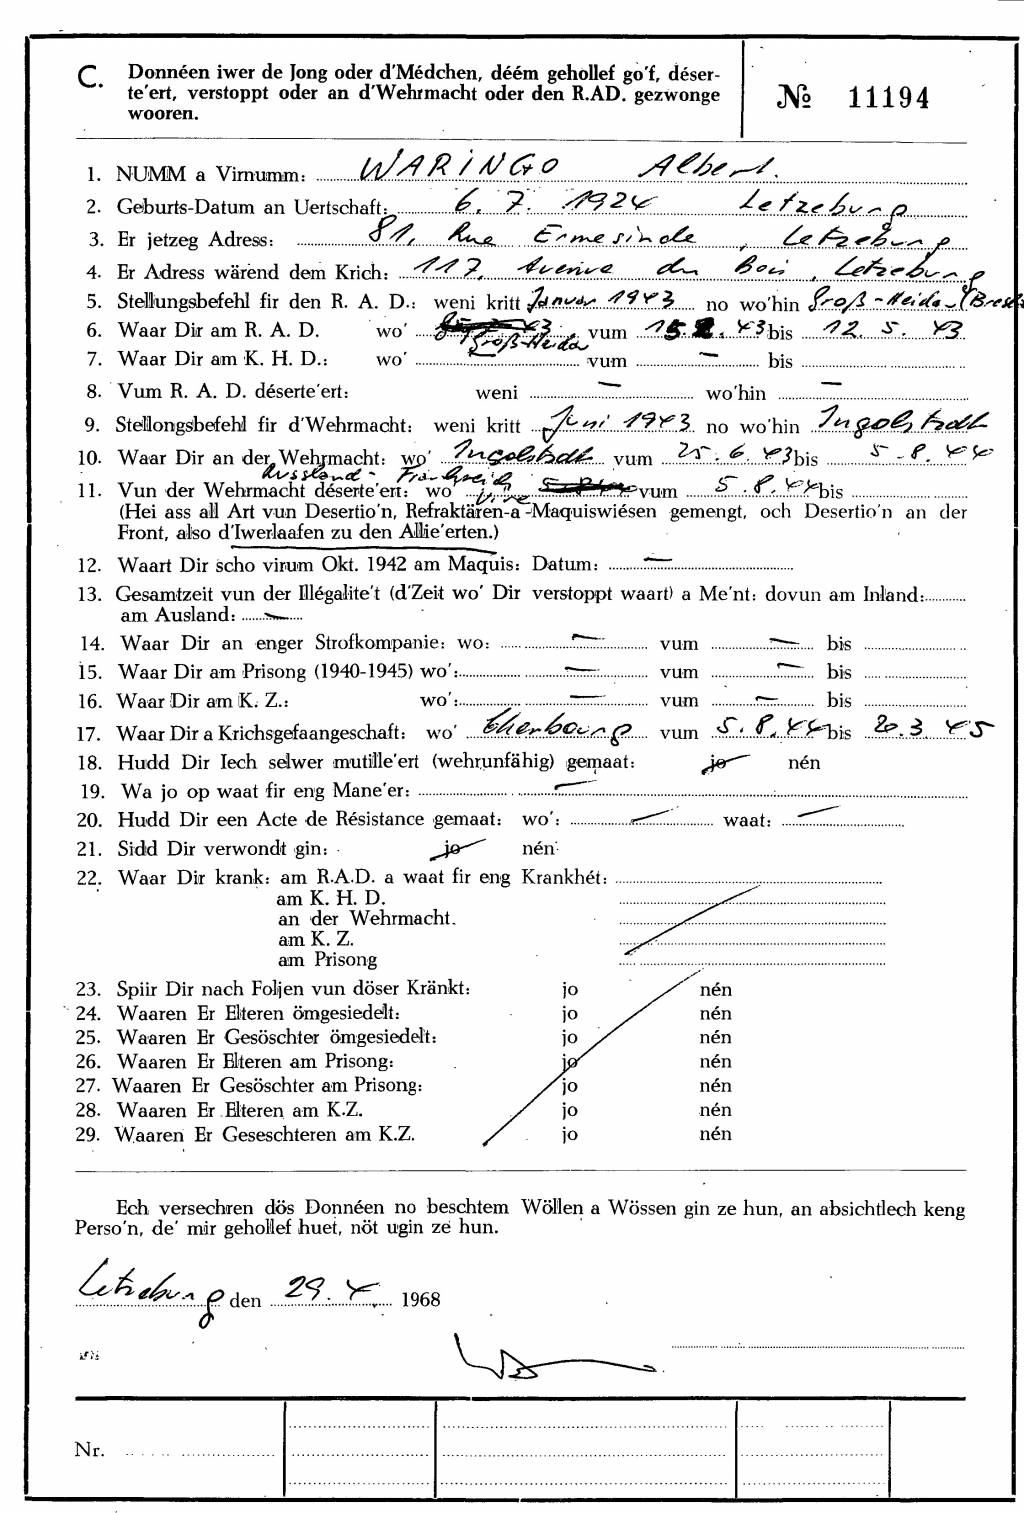 C. Donnéen iwer de Jong oder d'Médchen, déém gehollef go'f, déser-
te'ert, verstoppt oder an d'Wehrmacht oder den R.AD. gezwonge
wooren.
№ 11194
1. NUMM a Virnumm: WARINGO Albert.
2. Geburts-Datum an Uertschaft: 6. 7. 1924 Letzeburg
3. Er jetzeg Adress: 81, Rue Ermesinde, Letzeburg
4. Er Adress wärend dem Krich: 117, Avenue du Bois, Letzeburg
5. Stellungsbefehl fir den R. A. D.: weni kritt Januar 1943 no wo'hin Groß-Heida-(Bresl
6. Waar Dir am R. A. D. wo' Groß-Heida vum 15 2. 43 bis 12. 5. 43
7. Waar Dir am K. H. D.: wo' vum — bis
8. Vum R. A. D. déserte'ert: weni — wo'hin —
9. Stellongsbefehl fir d'Wehrmacht: weni kritt Juni 1943 no wo'hin Ingolstadt
10. Waar Dir an der Wehrmacht: wo' Ingolstadt vum 25. 6. 43 bis 5. 8. 44
Russland - Frankreich
11. Vun der Wehrmacht déserte'ert: wo Vire vum 5. 8. 44 bis
(Hei ass all Art vun Desertio'n, Refraktären-a -Maquiswiésen gemengt, och Desertio'n an der
Front, also d'Iwerlaafen zu den Allie'erten.)
12. Waart Dir scho virum Okt. 1942 am Maquis: Datum: —
13. Gesamtzeit vun der Illégalite't (d'Zeit wo' Dir verstoppt waart) a Me'nt: dovun am Inland:
am Ausland: —
14. Waar Dir an enger Strofkompanie: wo: — vum — bis
15. Waar Dir am Prisong (1940-1945) wo': — vum — bis
16. Waar Dir am K. Z.: wo': — vum — bis
17. Waar Dir a Krichsgefaangeschaft: wo' Cherbourg vum 5. 8. 44 bis 20. 3. 45
18. Hudd Dir Iech selwer mutille'ert (wehrunfähig) gemaat: jo nén
19. Wa jo op waat fir eng Mane'er: —
20. Hudd Dir een Acte de Résistance gemaat: wo': — waat: —
21. Sidd Dir verwondt gin: jo nén
22. Waar Dir krank: am R.A.D. a waat fir eng Krankhét:
am K. H. D.
an der Wehrmacht.
am K. Z.
am Prisong
23. Spiir Dir nach Foljen vun döser Kränkt: jo nén
24. Waaren Er Elteren ömgesiedelt: jo nén
25. Waaren Er Gesöschter ömgesiedelt: jo nén
26. Waaren Er Elteren am Prisong: jo nén
27. Waaren Er Gesöschter am Prisong: jo nén
28. Waaren Er Elteren am K.Z. jo nén
29. Waaren Er Geseschteren am K.Z. jo nén
Ech versechren dös Donnéen no beschtem Wöllen a Wössen gin ze hun, an absichtlech keng
Perso'n, de' mir gehollef huet, nöt ugin ze hun.
Letzeburg den 29. 4. 1968
Nr.